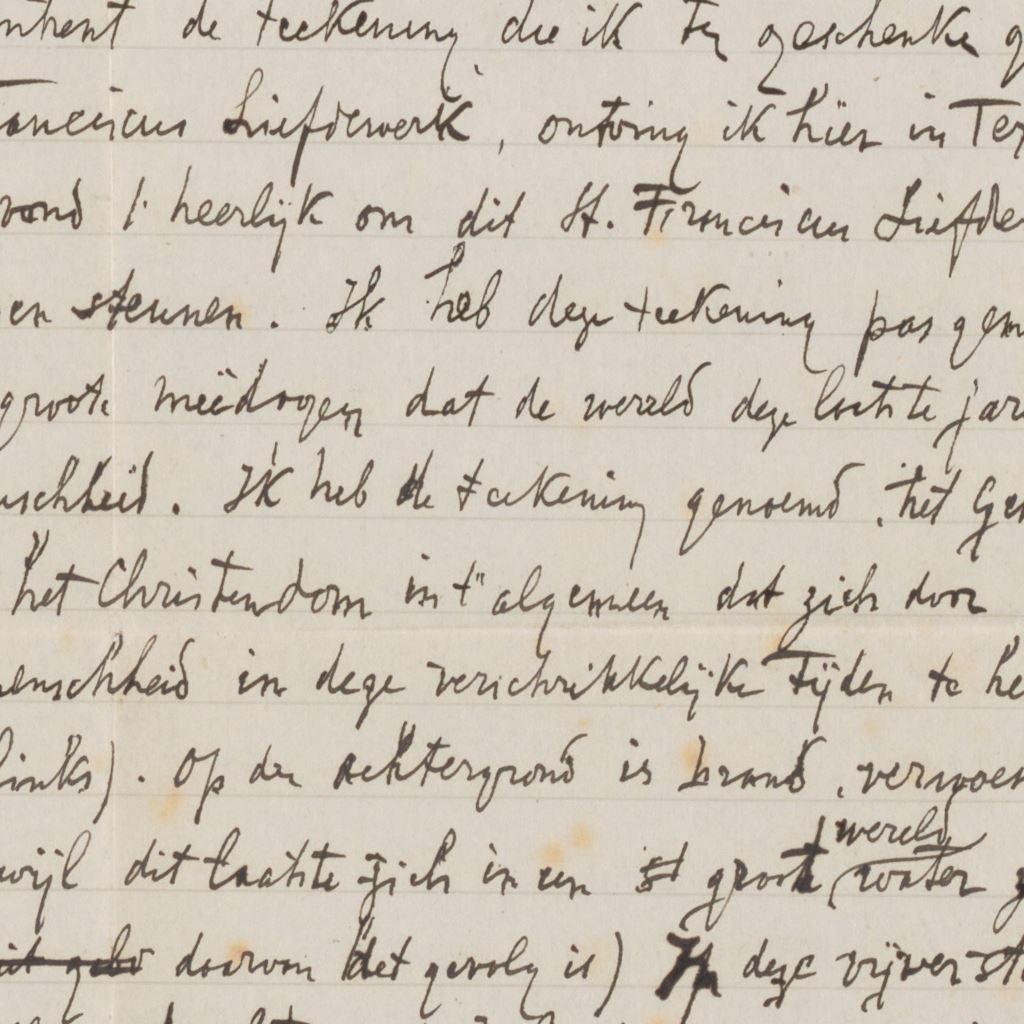 de teekening, die ik ten geschenke g
Franciscus Liefdewerk, ontving ik hier in Ter
vond 't heerlijk om dit St. Franciscus Liefde
en steunen. Ik heb deze teekening pas gem
groote meëdogen dat de wereld deze laatste jar
nschheid. Ik heb de teekening genoemd, het Ge
het Christendom in 't algemeen dat zich door
menschheid in deze verschrikkelijke tijden te he
links). Op den achtergrond is brand, verwoes
wijl dit laatste zich in een groote wereld water z
daarvan het gevolg is) In deze vijver st